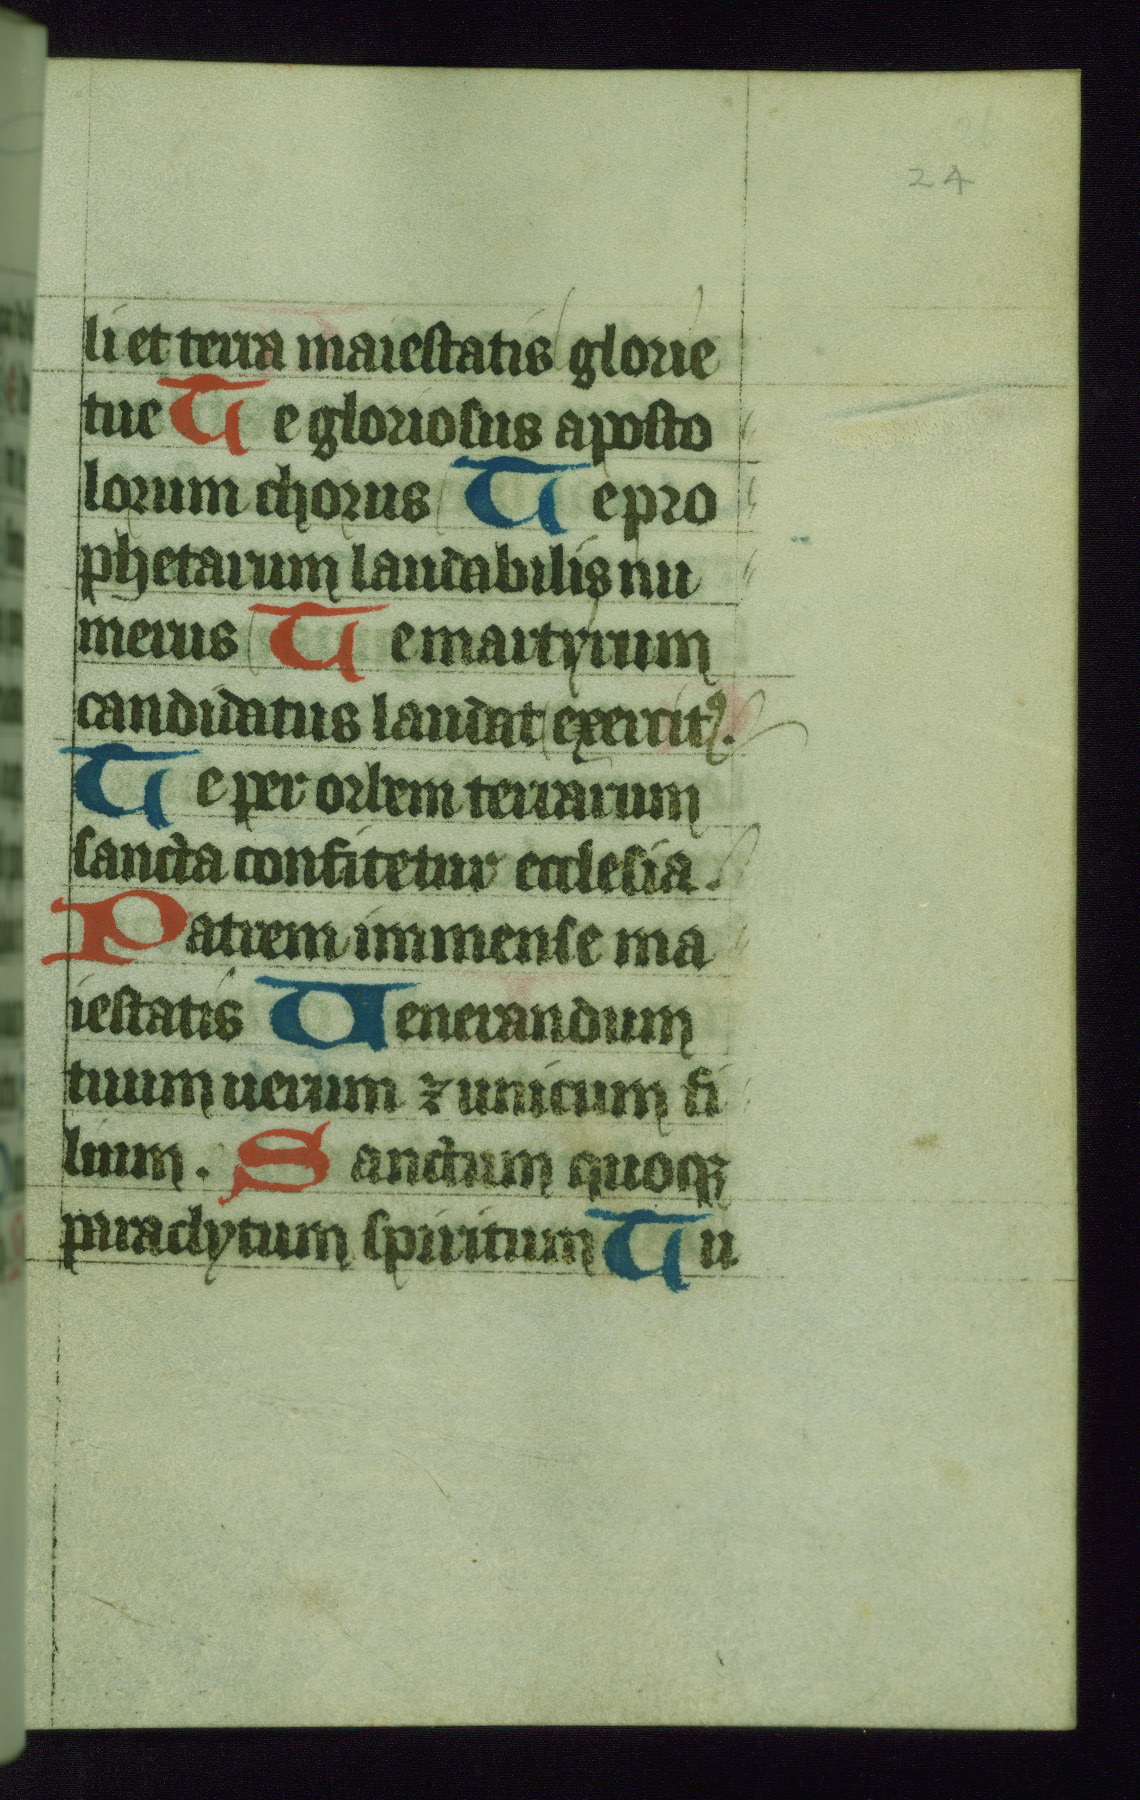 24
li et terra maiestatis glorie
tue Te gloriosus aposto
lorum chorus Te pro
phetarum laudabilis nu
merus Te martyrum
candidatus laudat exercitꝰ.
Te per orbem terrarum
sancta confitetur ecclesia.
Patrem immense ma
iestatis Uenerandum
tuum uerum ⁊ unicum fi
lium. Sanctum quoqꝫ
paraclytum spiritum Tu